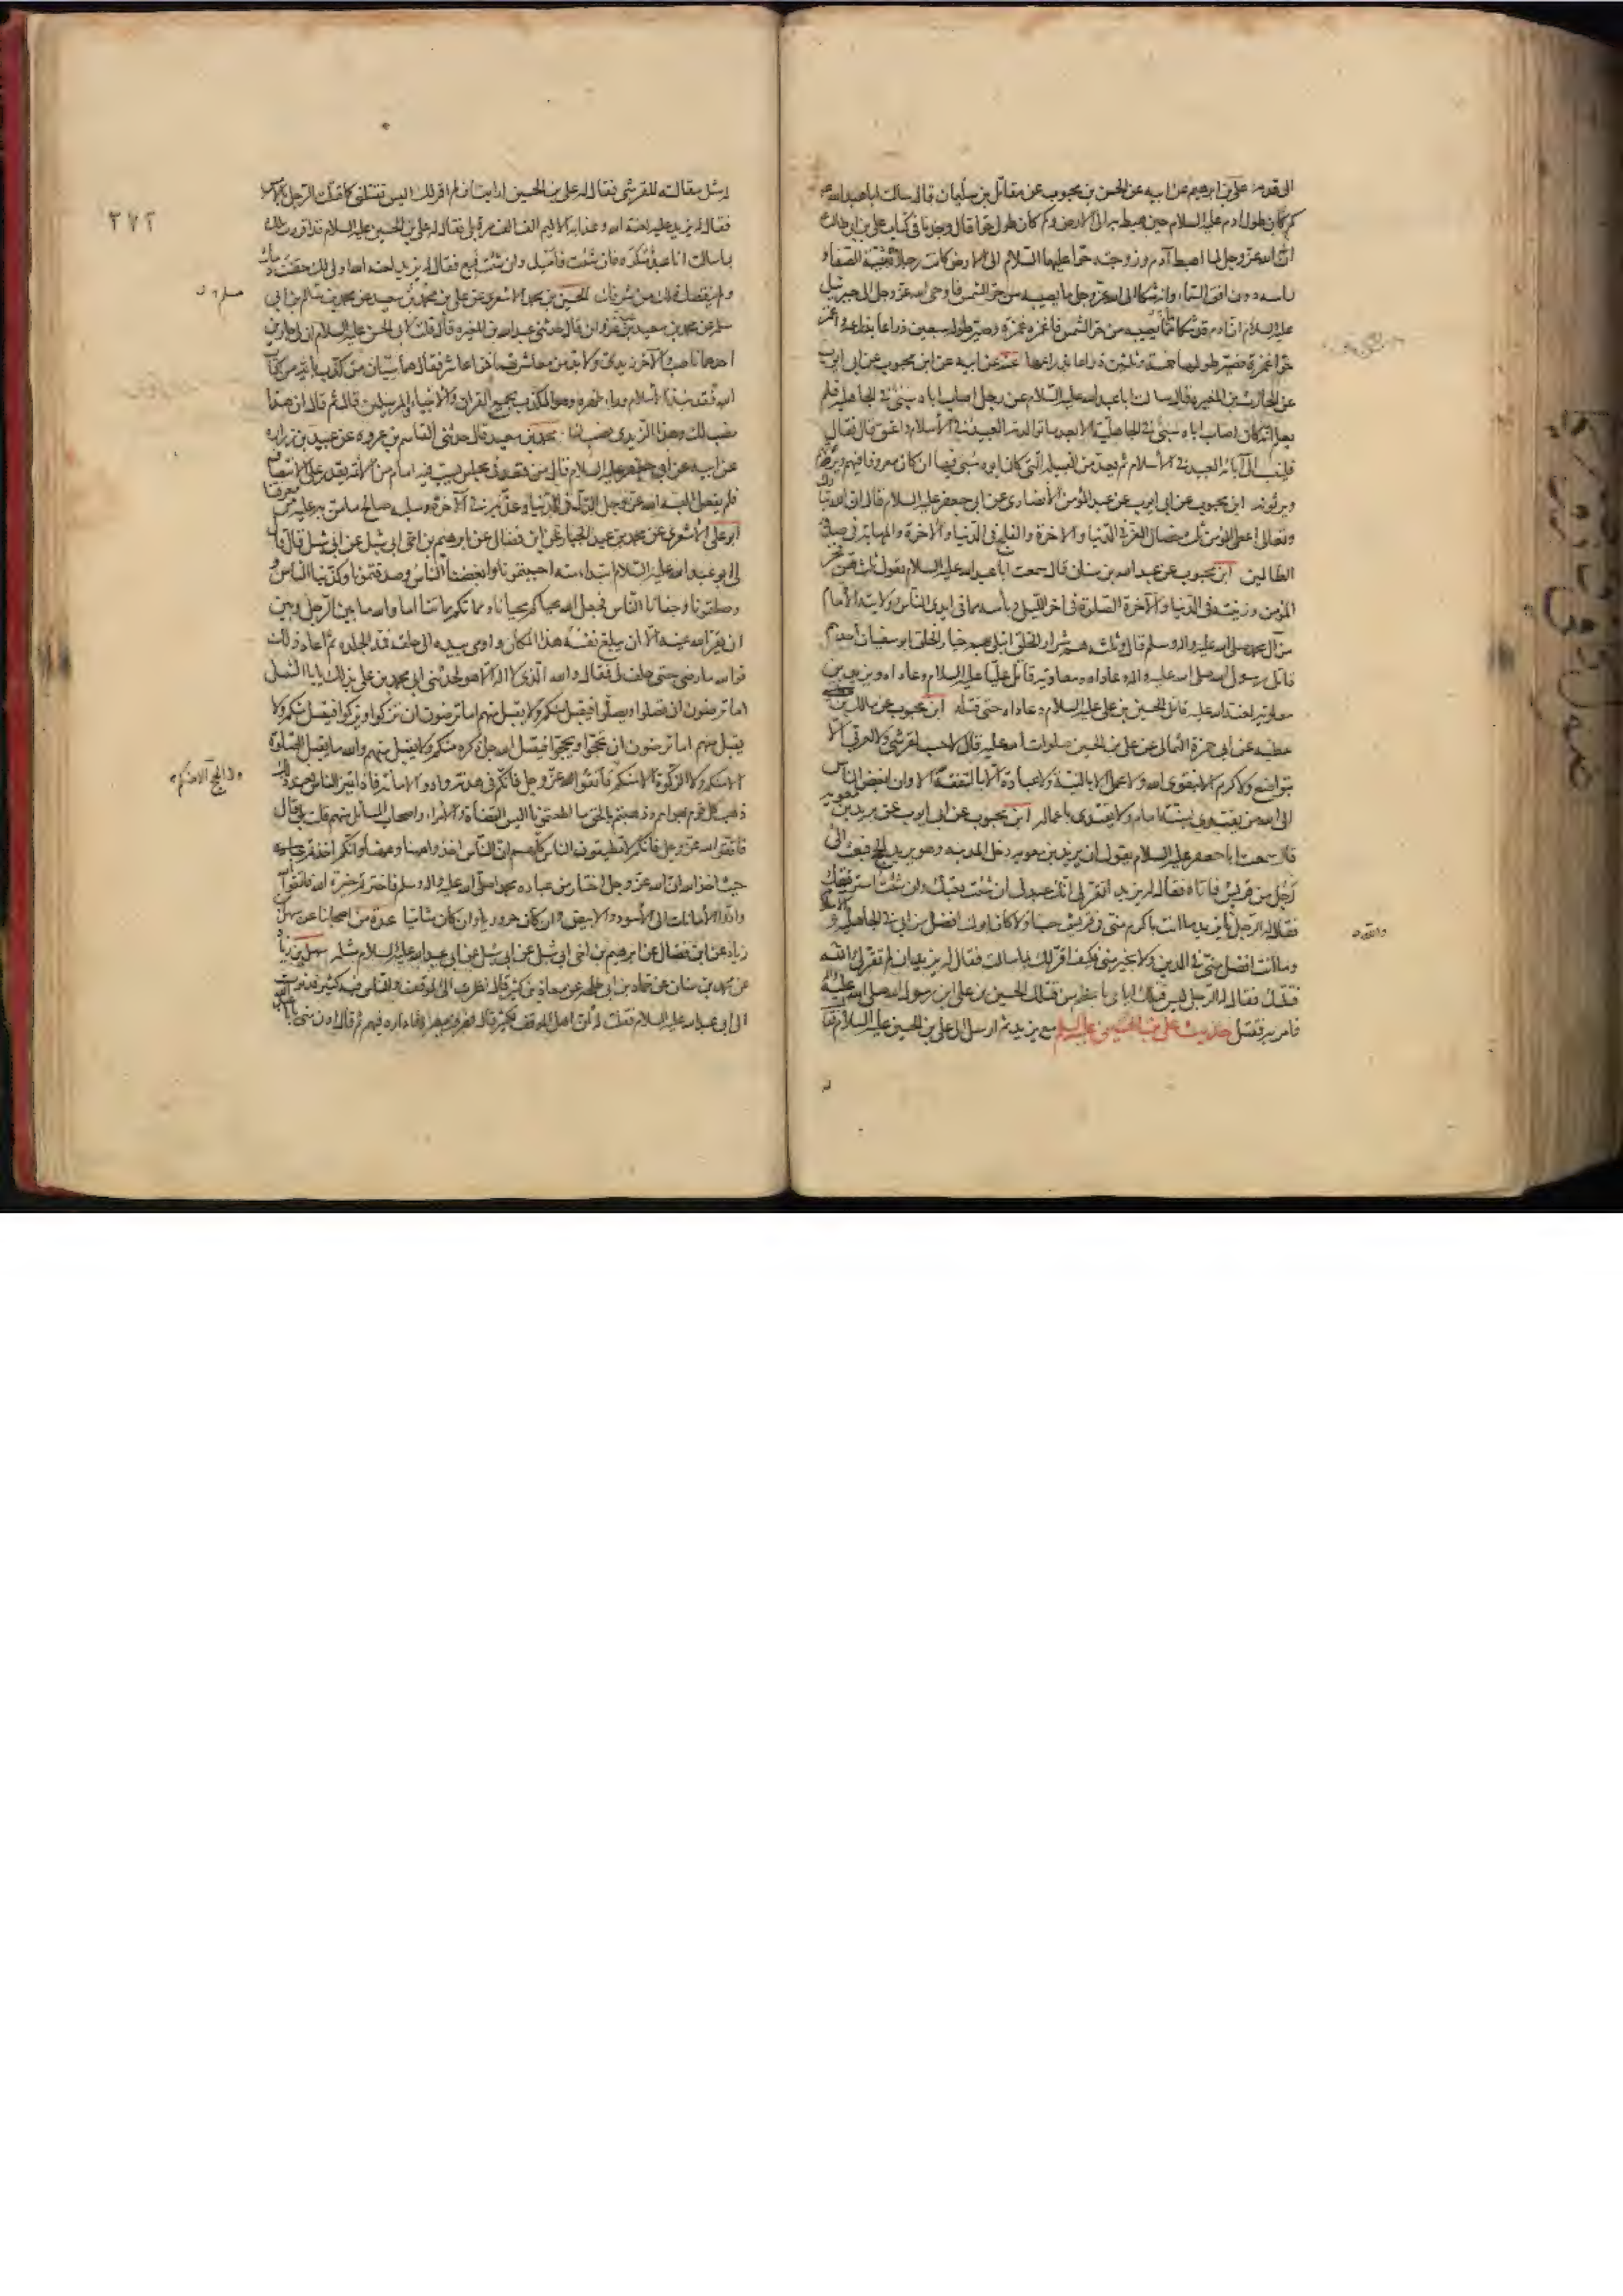 الى قومه علي بن ابرهيم عن ابيه عن الحسن بن محبوب عن مقاتل بن سليمان قال سالت ابا عبد الله ع
كم كان طول ادم عليه السلام حين هبط به الى الارض وكم كان طول حوا قال وجدنا في كتاب علي بن ابي طالب ع
ان الله عز وجل لما اهبط آدم وزوجته حوا عليهما السلام الى الارض كانت رجلاه بثنية الصفا و
راسه دون افق السماء وانه شكا الى الله عز وجل ما يصيبه من حر الشمس فاوحى الله عز وجل الى جبرئيل
عليه السلام ان ادم قد شكا ما يصيبه من حر الشمس فاغمزه غمزة وصير طوله سبعين ذراعا بذراعه واغمز
حوا غمزة فصير طولها خمسة وثلثين ذراعا بذراعها عنه عن ابيه عن ابن محبوب عن ابي ايوب
عن الحارث بن المغيرة قال سالت ابا عبد الله عليه السلام عن رجل اصاب اباه سبي في الجاهلية فلم
يعلم انه كان اصاب اباه سبي في الجاهلية الا بعد ما توالدته العبيد في الأسلام واعتق قال فقال
فلينسب الى آبائه العبيد في الأسلام ثم يعد من القبيلة التي كان ابوه سبي فيها ان كان معروفا فيهم ويرثهم
ويرثونه ابن محبوب عن ابي ايوب عن عبد المؤمن الأنصارى عن ابي جعفر عليه السلام قال ان الله تبارك
وتعالى اعطى المؤمن ثلث خصال العز في الدنيا والاخرة والفلج في الدنيا والاخرة والمهابة في صدور
الظالمين ابن محبوب عن عبد الله بن سنان قال سمعت ابا عبد الله عليه السلام يقول ثلث هن فخر
المؤمن وزينته في الدنيا والآخرة الصلوة في اخر الليل وياسه مما في ايدى الناس وولايته الأمام
من آل محمد صلى الله عليه واله وسلم قال وثلثة هم شرار الخلق ابتلي بهم خيار الخلق ابو سفيان احدهم
قاتل رسول الله صلى الله عليه واله وعاداه ومعاوية قاتل عليا عليه السلام وعاداه ويزيد بن
معاوية لعنه الله عليه قاتل الحسين بن علي عليه السلام وعاداه حتى قتله ابن محبوب عن مالك بن
عطيه عن ابي حمزة الثمالي عن علي بن الحسين صلوات الله عليه قال لا حسب لقرشي ولا لعربي الا
بتواضع ولا كرم الا بتقوى الله ولا عمل الا بالنية ولا عبادة الا بالتفقه الا وان ابغض الناس
الى الله من يقتدى بسنة امام ولا يقتدى باعماله ابن محبوب عن ابي ايوب عن بريد بن معوية
قال سمعت ابا جعفر عليه السلام يقول ان يزيد بن معويه دخل المدينه وهو يريد الحج فبعث الى
رجل من قريش فاتاه فقال له يزيد اتقر لي انك عبد لي ان شئت بعتك وان شئت استرققتك
فقال له الرجل والله يا يزيد ما انت باكرم مني في قريش حسبا ولا كان ابوك افضل من ابي في الجاهلية والاسلام
وما انت افضل مني في الدين ولا بخير مني فكيف اقر لك بما سالت فقال له يزيد ان لم تقر لي والله
قتلتك فقال له الرجل ليس قتلك اياى باعظم من قتلك الحسين بن علي ابن رسول الله صلى الله عليه واله
فامر به فقتل حديث علي بن الحسين عليه السلم مع يزيد ثم ارسل الى علي بن الحسين عليه السلام فقا
له
٢٧٢
له مثل مقالته للقرشي فقال له علي بن الحسين ارايت ان لم اقر لك اليس تقتلني كما قتلت الرجل بالامس
فقال له يزيد عليه لعنة الله بلى فقال له علي بن الحسين عليه السلام قد اقررت لك
بما سالت انا عبد مكره فان شئت فامسك وان شئت فبع فقال له يزيد لعنه الله اولى لك حقنت دمك
ولم ينقصك ذلك من شرفك الحسين بن محمد الاشعرى عن علي بن محمد بن سعيد عن محمد بن سالم بن ابي
سلمه عن محمد بن سعيد بن غزوان قال حدثني عبد الله بن المغيره قال قلت لابي الحسن عليه السلام ان لي جارين
احدهما ناصب والآخر زيدى ولا بد من معاشرتهما فمن اعاشر فقال هما سيان من كذب بآية من كتاب
الله فقد نبذ الأسلام وراء ظهره وهو المكذب بجميع القرآن والأنبياء والمرسلين قال ثم قال ان هذا
نصب لك وهذا الزيدى نصب لنا محمد بن سعيد قال حدثني القاسم بن عروه عن عبيد بن زراره
عن ابيه عن ابي جعفر عليه السلام قال من قعد في مجلس يسب فيه امام من الأئمة يقدر على الانتصاف
فلم يفعل البسه الله عز وجل الذل في الدنيا وعذبه في الآخرة وسلبه صالح ما من به عليه من معرفتنا
ابو علي الأشعرى عن محمد بن عبد الجبار عن ابن فضال عن ابرهيم بن اخى ابي شبل عن ابي شبل قال قال
لى ابو عبد الله عليه السلام ابتداء منه احببتمونا وابغضنا الناس وصدقتمونا وكذبنا الناس و
وصلتمونا وجفانا الناس فجعل الله محياكم محيانا ومماتكم مماتنا اما والله ما بين الرجل وبين
ان يقر الله عينه الا ان يبلغ نفسه هذا المكان واومى بيده الى حلقه فمد الجلده ثم اعاد ذلك
فوالله ما رضى حتى حلف لى فقال والله الذى لا اله الا هو لحدثني ابي محمد بن علي بذلك يا با الشبل
اما ترضون ان تصلوا ويصلوا فيقبل منكم ولا يقبل منهم اما ترضون ان تزكوا ويزكوا فيقبل منكم ولا
يقبل منهم اما ترضون ان تحجوا ويحجوا فيقبل الله جل ذكره منكم ولا يقبل منهم والله ما يقبل الصلوة
الا منكم ولا الزكوة الا منكم فاتقوا الله عز وجل فانكم في هدنة وادوا الامانة فاذا تميز الناس فعند ذلك
ذهب كل قوم بهواهم وذهبتم بالحق ما اطعتمونا اليس القضاة والأمراء واصحاب المسائل منهم قلت بلى قال
فاتقوا الله عز وجل فانكم لا تطيقون الناس كلهم ان الناس اخذوا هيهنا وهيهنا وانكم اخذتم
حيث اخذ الله ان الله عز وجل اختار من عباده محمدا صلى الله عليه واله وسلم فاخترتم خيرة الله فاتقوا الله
وادوا الأمانات الى الأسود والابيض وان كان حروريا وان كان شاميا عدة من اصحابنا عن سهل بن
زياد عن ابن فضال عن ابرهيم بن اخى ابي شبل عن ابي شبل عن ابي عبد الله عليه السلام مثله سهل بن زياد
عن محمد بن سنان عن حماد بن ابي طلحه عن معاذ بن كثير قال نظرت الى الموقف والناس فيه كثير فدنوت
الى ابي عبد الله عليه السلام فقلت له ان اهل الموقف لكثير قال فصرف ببصره فاداره فيهم ثم قال ادن مني يا ابا عبد الله
ولا الحج الا منكم